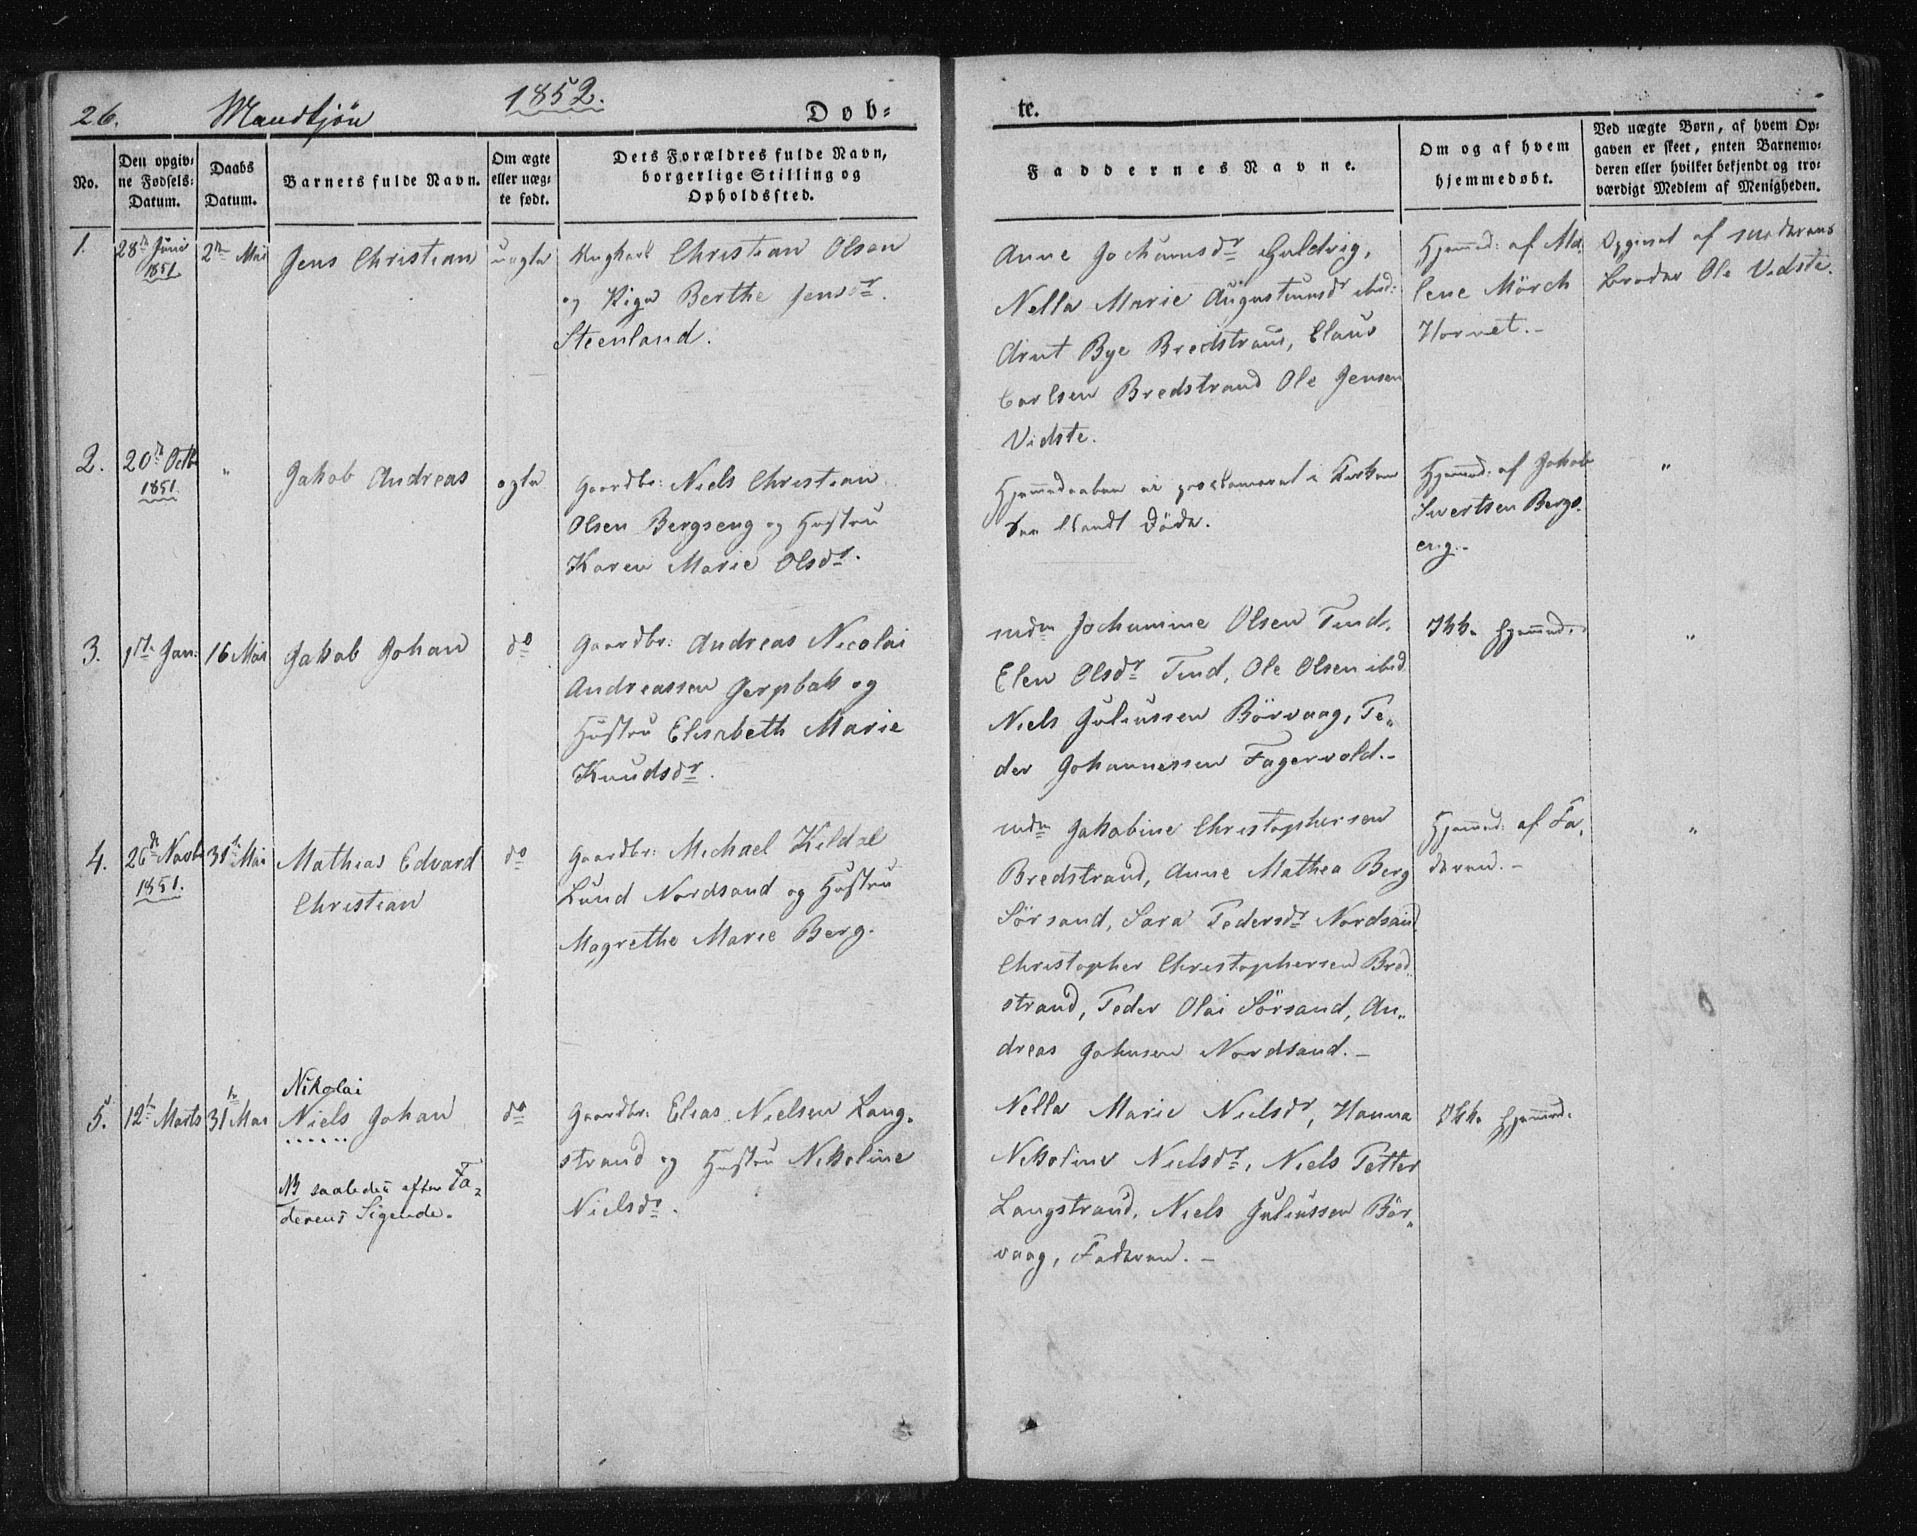 26. Mandkjön 1852. Döb-
te.
No.
Den opgiv-
ne Fødsels-
Datum.
Daabs
Datum.
Barnets fulde Navn.
Om ægte
eller uæg-
te født.
Dets Forældres fulde Navn,
borgerlige Stilling og
Opholdssted.
Faddernes Navne.
Om og af hvem
hjemmedøbt.
Ved uægte Børn, af hvem Op-
gaven er skeet, enten Barnemo-
deren eller hvilket bekjendt og tro-
værdigt Medlem af Menigheden.
1.
28de Juni
1851
2den Mai
Jens Christian
uægte
Ungkarl Christian Olsen
og Pige Berthe Jensdr.
Steenland.
Anne Jochumsdr Guldvig,
Nella Marie Augustinusdr ibid:
Arnt Bye Bredstrand, Claus
Carlsen Bredstrand Ole Jensen
Vidste.
Hjemmed: af Ma-
lene Mörch
Hornet.-
Opgivet af moderens
Broder Ole Vidste.
2.
20de Octb
1851
"
Jakob Andreas
ægte
Gaardbr: Niels Christian
Olsen Bergseng og Hustru
Karen Marie Olsdr.
Hjemmedaaben ei proclameret i Kirken
da Barnet döde.
Hjemmed: af Jakob
Sivertsen Bergs-
eng.-
"
3.
1ste Jan:
16 Mai
Jakob Johan
do
Gaardbr: Andreas Nicolai
Andreassen Jerpbak og
Hustru Elisabeth Marie
Knudsdr.
mdm Jochumine Olsen Tind,
Elen Olsdr Tind, Ole Olsen ibid
Niels Juliussen Börvaag, Pe-
der Johannessen Fagervold.-
Ikke hjemmed:
"
4.
26de Novb
1851.
31te Mai
Mathias Edvard
Christian
do
Gaardbr: Michael Kildal
Lund Nordsand og Hustru
Magrethe Marie Berg.
mdm Jakobine Christophersen
Bredstrand, Anne Mathea Berg
Sörsand, Sara Pedersdr Nordsand
Christopher Christophersen Bred-
strand, Peder Olai Sörsand, An-
dreas Johnsen Nordsand.-
Hjemmed: af Fa-
deren.-
"
5.
12te Marts
31te Mai
Nikolai
Niels Johan
NB saaledes efter Fa-
derens Sigende.
do
Gaardbr: Elias Nielsen Lang-
strand og Hustru Nikoline
Nielsdr.
Nella Marie Nielsdr, Hanna
Nikoline Nielsdr, Niels Petter
Langstrand, Niels Juliussen Bör-
vaag, Faderen.-
Ikke hjemmed: